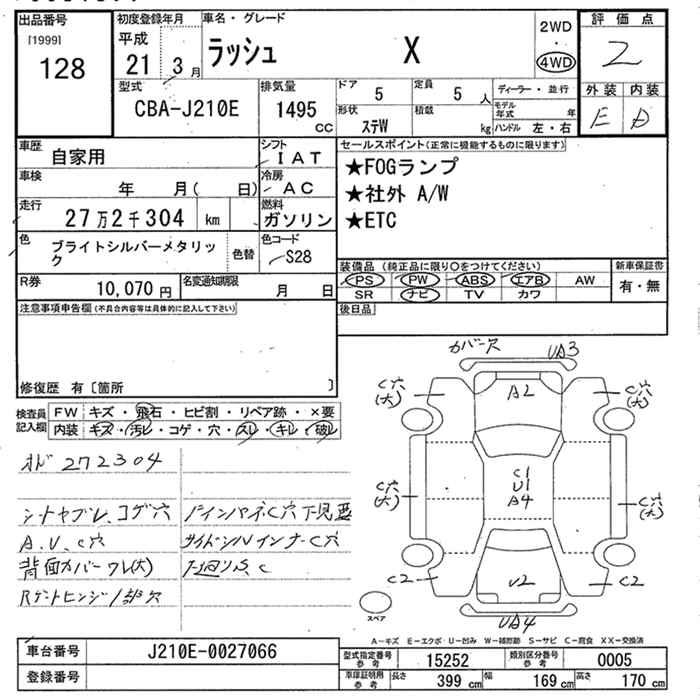 出品番号
[1999]
128
初度登録年月
平成
21 3 月
車名・グレード
ラッシュ X
2WD
・
4WD
評価点
2
外装 内装
E D
型式
CBA-J210E
排気量
1495
cc
ドア 5
定員 5 人
形状 ステW
積載 kg
ディーラー・並行
モデル年式 年
ハンドル 左・右
車歴
自家用
シフト
IAT
車検
年 月( 日)
冷房
AC
走行
27万2千304 km
燃料
ガソリン
色
ブライトシルバーメタリック
色替
色コード
S28
R券
10,070 円
名変通知期限
月 日
セールスポイント(正常に機能するものに限ります)
★FOGランプ
★社外 A/W
★ETC
装備品 (純正品に限り○をつけてください)
PS PW ABS エアB AW
SR ナビ TV カワ
新車保証書
有・無
後日品
注意事項申告欄(不具合内容等は具体的に記入して下さい)
修復歴 有〔箇所 〕
検査員記入欄
FW キズ・飛石・ヒビ割・リペア跡・×要
内装 キズ・汚レ・コゲ・穴・スレ・キレ・破レ
オド 272304
シートヤブレ、コゲ穴
A.U、C穴
背面カバーワレ(大)
Rゲートヒンジ部穴
インパネC穴
サイドシルインナーC穴
下回りS、C
カバー穴
UA3
A2
C穴
(大)
C穴
(大)
C穴
(大)
C1
U1
A4
C穴
(大)
C2
U2
C2
UA4
スペア
A－キズ E－エクボ・U－凹み W－補修跡 S－サビ C－腐食 XX－交換済
車台番号
J210E-0027066
登録番号
型式指定番号
参考
15252
類別区分番号
参考
0005
車庫証明用
参考
長さ 399 cm
幅 169 cm
高さ 170 cm